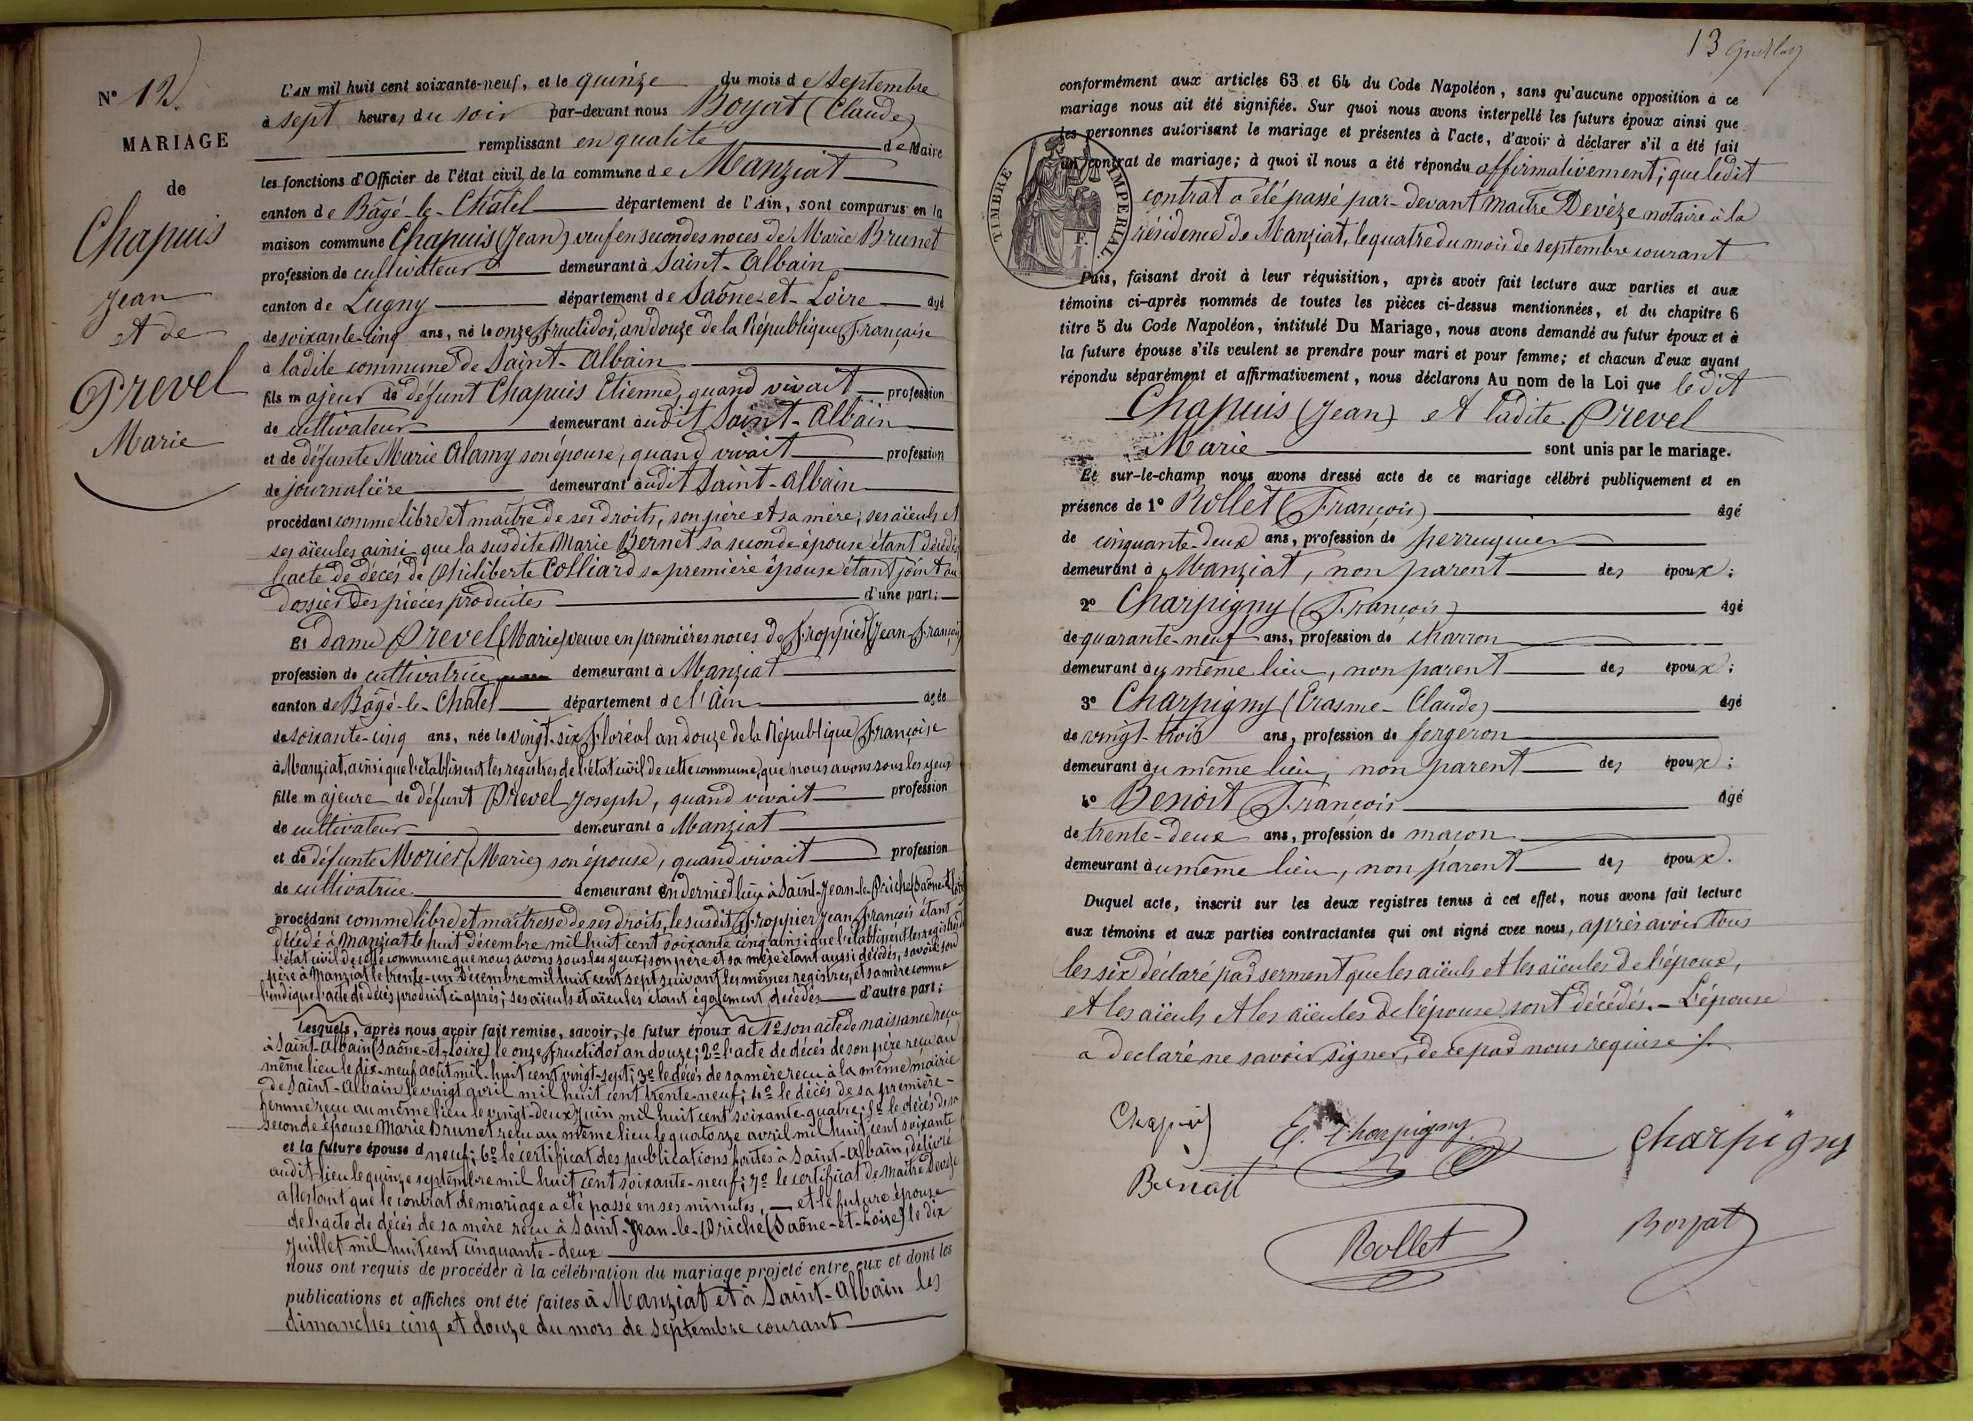 N° 12.
MARIAGE
de
Chapuis
Jean
et de
Prevel
Marie
L'AN mil huit cent soixante-neuf, et le quinze du mois de Septembre
à sept heures du soir par-devant nous Boyat (Claude)
remplissant en qualité de Maire
les fonctions d'Officier de l'état civil de la commune de Manziat
canton de Bâgé-le-Châtel département de l'Ain, sont comparus en la
maison commune Chapuis (Jean) veuf en secondes noces de Marie Brunet
profession de cultivateur demeurant à Saint-Albain
canton de Lugny département de Saône-et-Loire âgé
de soixante-cinq ans, né le onze fructidor, an douze de la République Française
à ladite commune de Saint-Albain
fils majeur de défunt Chapuis Etienne, quand vivait profession
de cultivateur demeurant audit Saint-Albain
et de défunte Marie Alamy son épouse, quand vivait profession
de journalière demeurant audit Saint-Albain
procédant comme libre et maître de ses droits, son père et sa mère, ses aïeuls et
ses aïeules ainsi que la susdite Marie Bernet sa seconde épouse étant décédés
l'acte de décès de Philiberte Colliard sa première épouse étant joint au
dossier des pièces produites d'une part;
Et dame Prevel (Marie) veuve en premières noces de Froppier (Jean-François)
profession de cultivatrice demeurant à Manziat
canton de Bâgé-le-Châtel département de l'Ain âgée
de soixante-cinq ans, née le vingt-six floréal an douze de la République Française
à Manziat, ainsi que l'établissent les registres de l'état civil de cette commune, que nous avons sous les yeux
fille majeure de défunt Prevel Joseph, quand vivait profession
de cultivateur demeurant à Manziat
et de défunte Morier (Marie) son épouse, quand vivait profession
de cultivatrice demeurant en dernier lieu à Saint-Jean-le-Priche (Saône-et-Loire)
procédant comme libre et maîtresse de ses droits, le susdit Froppier Jean François étant
décédé à Manziat le huit décembre mil huit cent soixante cinq ainsi que l'établissent les registres de
l'état civil de cette commune que nous avons sous les yeux; son père et sa mère étant aussi décédés, savoir son
père à Manziat le trente-un décembre mil huit cent sept suivant les mêmes registres, et sa mère comme
l'indique l'acte de décès produit ci après; ses aïeuls et aïeules étant également décédés d'autre part;
Lesquels, après nous avoir fait remise, savoir, le futur époux de 1° son acte de naissance reçu
à Saint-Albain (Saône-et-Loire) le onze fructidor an douze; 2° l'acte de décès de son père reçu au
même lieu le dix-neuf août mil-huit cent vingt-sept; 3° le décès de sa mère reçu à la même mairie
de Saint-Albain le vingt avril mil huit cent trente-neuf; 4° le décès de sa première-
femme reçu au même lieu le vingt-deux juin mil huit cent soixante-quatre; 5° le décès de sa
seconde épouse Marie Brunet reçu au même lieu le quatorze avril mil huit cent soixante
et la future épouse d neuf; 6° le certificat des publications faites à Saint-Albain, délivré
audit lieu le quinze septembre mil huit cent soixante-neuf; 7° le certificat de maître Devèze
attestant que le contrat de mariage a été passé en ses minutes, et la future épouse
de l'acte de décès de sa mère reçu à Saint-Jean-le-Priche (Saône-et-Loire) le dix
juillet mil huit cent cinquante-deux
nous ont requis de procéder à la célébration du mariage projeté entre eux et dont les
publications et affiches ont été faites à Manziat et à Saint-Albain les
dimanches cinq et douze du mois de septembre courant
13
conformément aux articles 63 et 64 du Code Napoléon, sans qu'aucune opposition à ce
mariage nous ait été signifiée. Sur quoi nous avons interpellé les futurs époux ainsi que
les personnes autorisant le mariage et présentes à l'acte, d'avoir à déclarer s'il a été fait
un contrat de mariage; à quoi il nous a été répondu affirmativement; que ledit
contrat a été passé par-devant maître Devèze notaire à la
résidence de Manziat, le quatre du mois de septembre courant
TIMBRE IMPERIAL
F.
Puis, faisant droit à leur réquisition, après avoir fait lecture aux parties et aux
témoins ci-après nommés de toutes les pièces ci-dessus mentionnées, et du chapitre 6
titre 5 du Code Napoléon, intitulé Du Mariage, nous avons demandé au futur époux et à
la future épouse s'ils veulent se prendre pour mari et pour femme; et chacun d'eux ayant
répondu séparément et affirmativement, nous déclarons Au nom de la Loi que ledit
Chapuis (Jean) et ladite Prevel
Marie sont unis par le mariage.
Et sur-le-champ nous avons dressé acte de ce mariage célébré publiquement et en
présence de 1° Rollet (François) âgé
de cinquante-deux ans, profession de perruquier
demeurant à Manziat, non parent des époux;
2° Charpigny (François) âgé
de quarante-neuf ans, profession de charron
demeurant au même lieu, non parent des époux;
3° Charpigny (Erasme-Claude) âgé
de vingt-trois ans, profession de forgeron
demeurant au même lieu, non parent des époux;
4° Benoît François âgé
de trente-deux ans, profession de maçon
demeurant au même lieu, non parent des époux.
Duquel acte, inscrit sur les deux registres tenus à cet effet, nous avons fait lecture
aux témoins et aux parties contractantes qui ont signé avec nous, après avoir tous
les six déclaré par serment que les aïeuls et les aïeules de l'époux,
et les aïeuls et les aïeules de l'épouse sont décédés. - L'épouse
a déclaré ne savoir signer, de ce par nous requise
Chapuis
E. Charpigny
Charpigny
Benoit
Rollet
Boyat